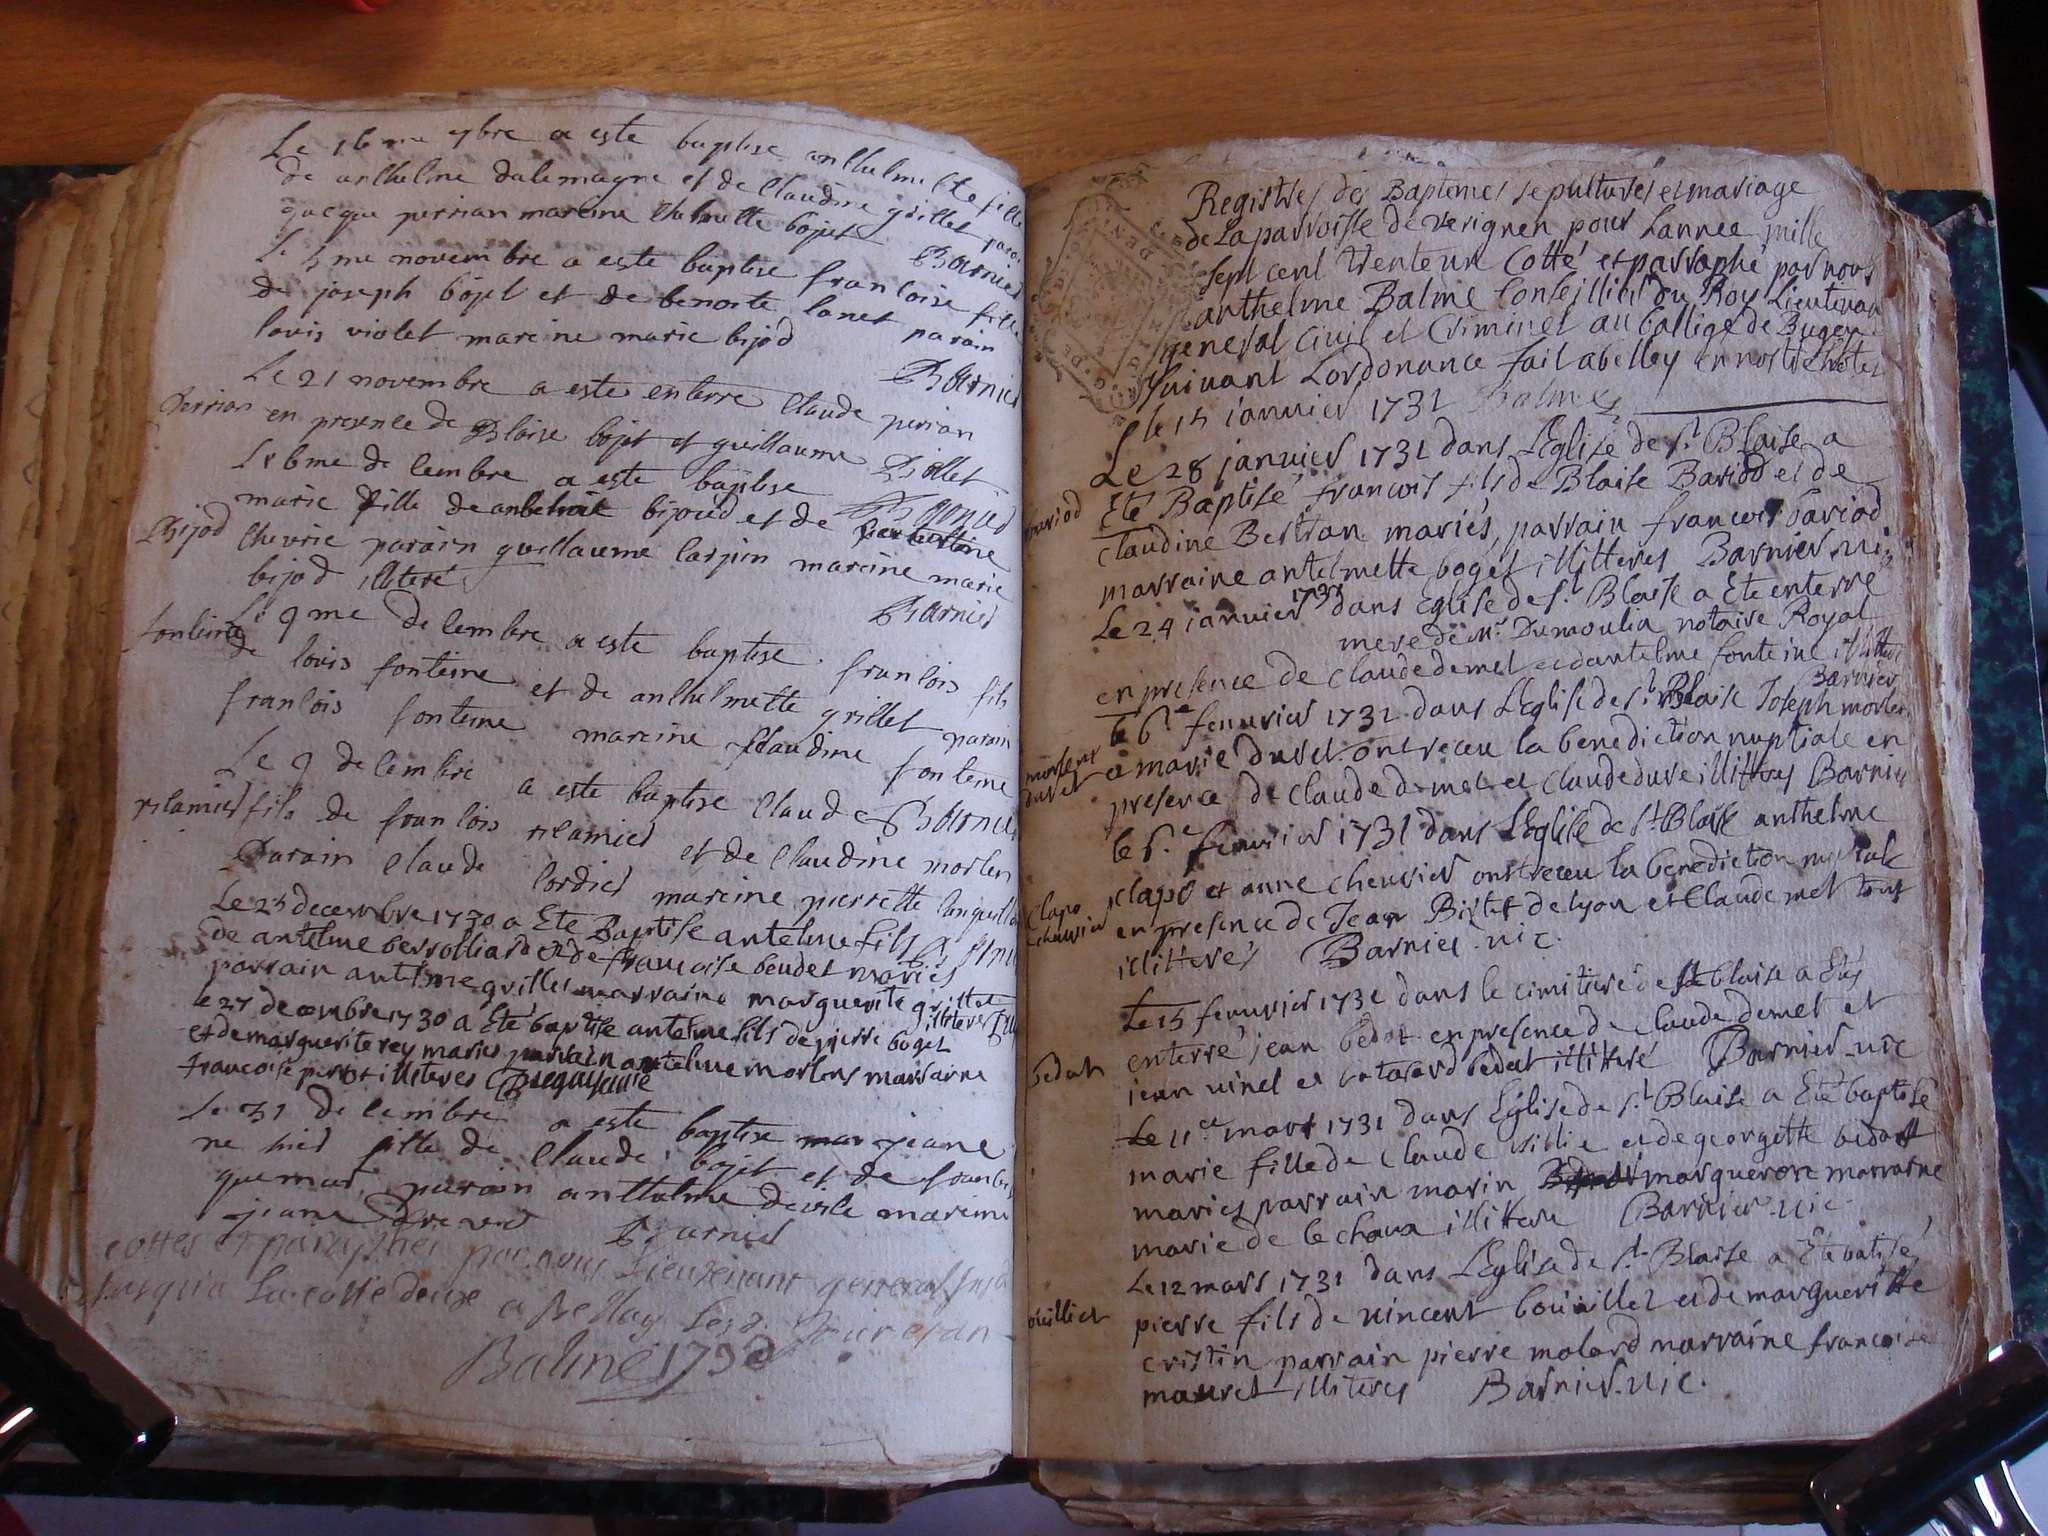 Le 16me 7bre a este baptise anthelmette fille
de anthelme dalemagne et de Claudine grillet parain
jacque perrian mareine thelmette bojet
Barnier
Le 5me novembre a este baptise francoise fille
de joseph bojet et de benoite lanet parain
louis violet mareine marie bijod
Barnier
Le 21 novembre a este enterre Claude perian
Perrian
en presence de Blaise bojet et guillaume
Barnier
Le 6me decembre a este baptise
marie fille de bijoud et de
Bijod
Chevrie parain guillaume larjin mareine marie
bijod illiteré
Barnier
Le 9me decembre a este baptise francois fils
fonteine
de louis fonteine et de anthelmette grillet parain
francois fonteine mareine Claudine fonteine
Le 9 decembre a este baptise Claude
Barnier
fils de francois et de Claudine morten
Parain Claude Cordier mareine pierrette
Le 25 decembre 1730 a Eté Baptise antelme fils
de antelme berrolliard et de francoise boudet mariés
parrain antelme grillet marraine marguerite grillet
illiteres
le 27 decembre 1730 a Eté baptise antelme fils de pierre boget
et de marguerite rey mariés parrain antelme morlens marraine
francoise perrot illiteres
Le 31 decembre a este baptise jeane
fille de Claude bojet et de
parain anthelme mareine
jeane
Barnier
cottes et paraphez par nous Lieutenant general
Jusqu'a La cotte douze a Bellay
Balme 1730
Registres des Baptemes sepultures et mariage
de La parroisse de verignen pour Lannee mille
sept cent trente un Cotté et parraphé par nous
anthelme Balme Conseillier du Roy Lieutenan
general Civil et Criminel au balliage de Bugey
suivant Lordonance fait a belley en nostre hotel
le 15 ianvier 1731 Balme
Le 28 janvier 1731 dans L'Eglise de St Blaise a
Eté Baptisé francois fils de Blaise Bariod et de
bariod
claudine Bertran mariés, parrain francois bariod
marraine antelmette boget illitteres Barnier vic
Le 24 ianvier 1731 dans Eglise de St Blaise a Ete enterre
mere de Mr Dumoulin notaire Royal
en presence de claude demet et dantelme fonteine illittere
Barnier
le 6e feuvrier 1731 dans L'Eglise de St Blaise Joseph morlens
e marie duret ont receu la benediction nuptiale en
morlens
duret
presence de claude demet et claude duret illitteres Barnier
le 6e feuvrier 1731 dans L'Eglise de St Blaise anthelme
clapo et anne cheuvier ont receu la benediction nuptiale
Clapo
cheuvier
en presence de Jean de lyon et Claude met tous
illitterés Barnier vic
Le 15 feuvrier 1731 dans le cimitiere de St blaise a Eté
enterré jean bedot en presence de claude demet et
bedot
jean vinet et bedot illitteré Barnier vic
Le 11e mars 1731 dans Eglise de St Blaise a Eté baptisé
marie fille de claude et de georgette bedot
mariés parrain marin margueron marraine
marie de le chaux illittere Barnier vic
Le 12 mars 1731 dans L'Eglise de St Blaise a Eté batisé
pierre fils de vincent bouillet et de margueritte
cristin parrain pierre molard marraine francoise
mauret illiteres Barnier vic.